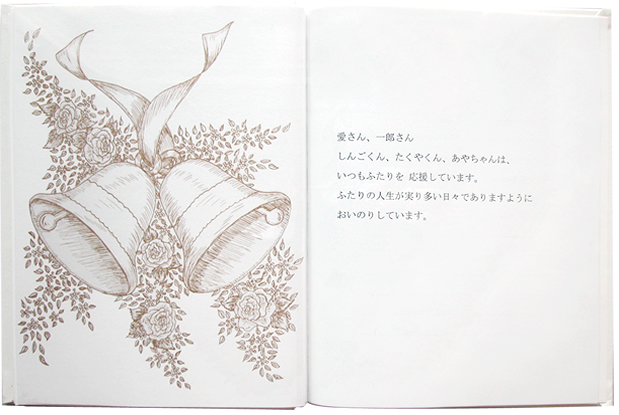 愛さん、一郎さん
しんごくん、たくやくん、あやちゃんは、
いつもふたりを 応援しています。
ふたりの人生が実り多い日々でありますように
おいのりしています。